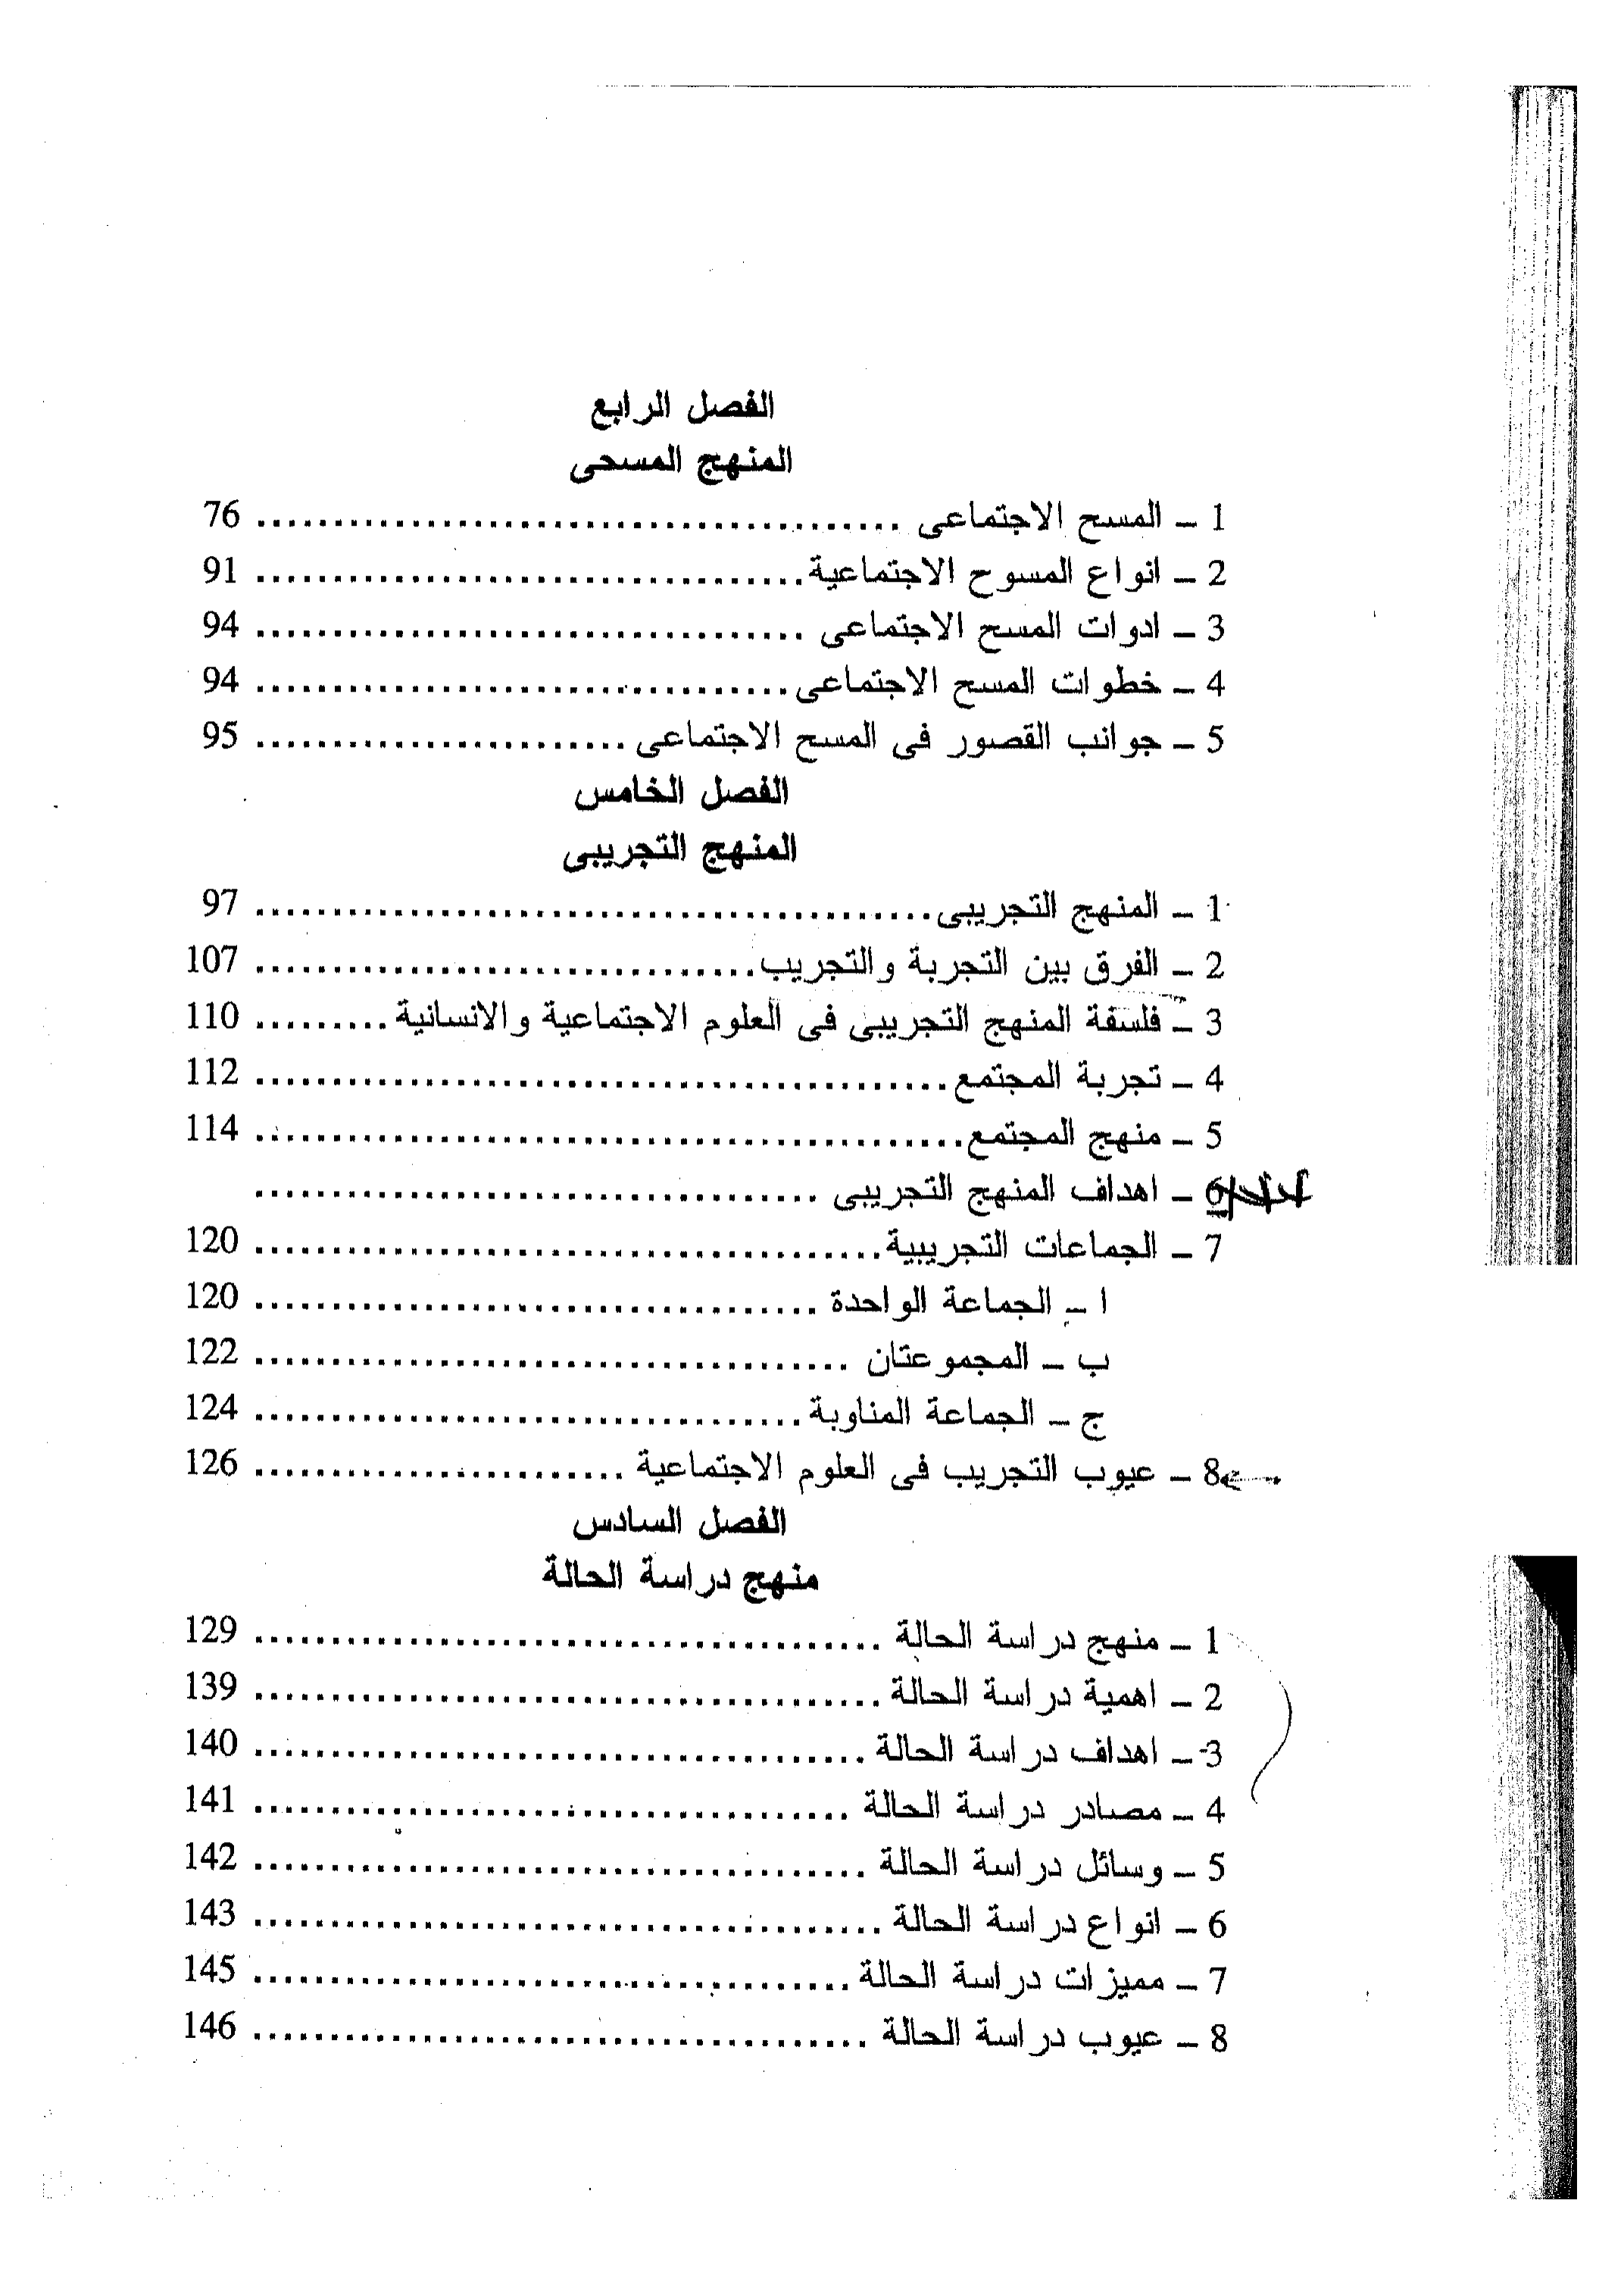 الفصل الرابع
المنهج المسحى
1 – المسح الاجتماعى .......................................... 76
2 – انواع المسوح الاجتماعية.................................... 91
3 – ادوات المسح الاجتماعى .................................... 94
4 – خطوات المسح الاجتماعى................................... 94
5 – جوانب القصور فى المسح الاجتماعى........................ 95
الفصل الخامس
المنهج التجريبى
1 – المنهج التجريبى............................................ 97
2 – الفرق بين التجربة والتجريب................................. 107
3 – فلسفة المنهج التجريبى فى العلوم الاجتماعية والانسانية......... 110
4 – تجربة المجتمع............................................. 112
5 – منهج المجتمع.............................................. 114
6 – اهداف المنهج التجريبى .....................................
7 – الجماعات التجريبية......................................... 120
ا – الجماعة الواحدة ..................................... 120
ب – المجموعتان ....................................... 122
ج – الجماعة المناوبة.................................... 124
8 – عيوب التجريب فى العلوم الاجتماعية ........................ 126
الفصل السادس
منهج دراسة الحالة
1 – منهج دراسة الحالة ......................................... 129
2 – اهمية دراسة الحالة ......................................... 139
3 – اهداف دراسة الحالة ........................................ 140
4 – مصادر دراسة الحالة ....................................... 141
5 – وسائل دراسة الحالة ........................................ 142
6 – انواع دراسة الحالة ......................................... 143
7 – مميزات دراسة الحالة....................................... 145
8 – عيوب دراسة الحالة ........................................ 146